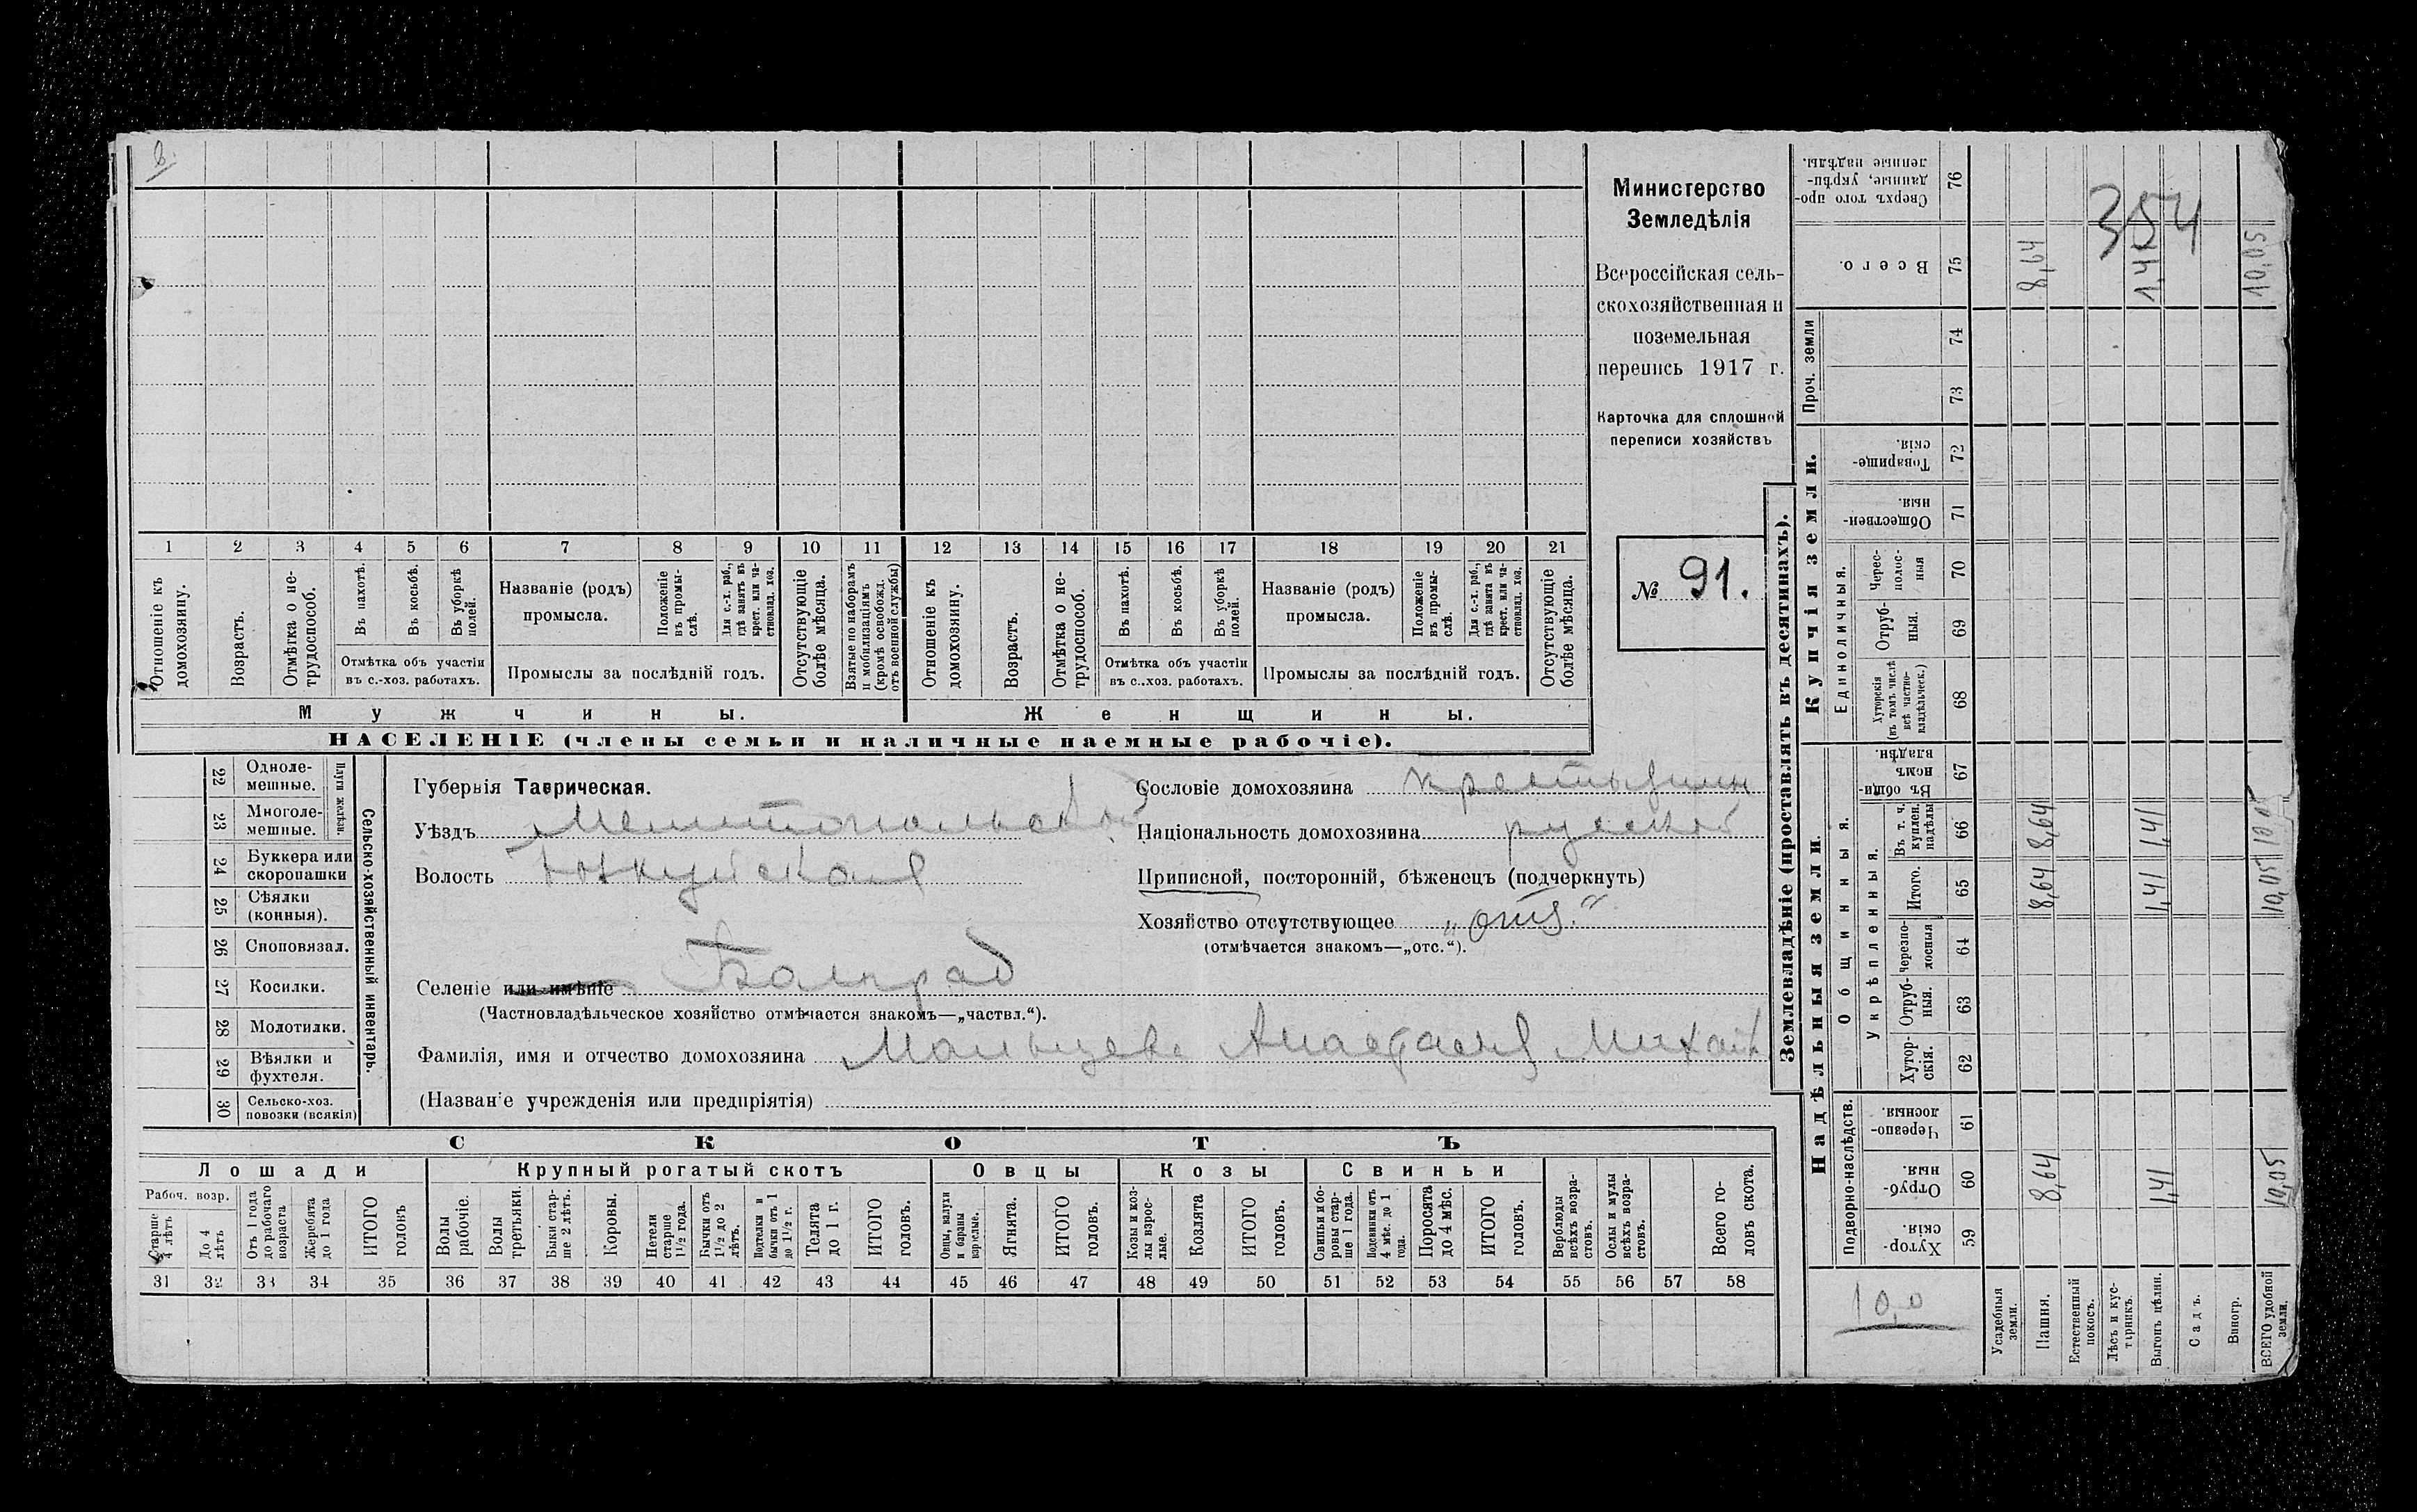 354
Министерство
Земледѣлія
Всероссійская сель-
скохозяйственная и
поземельная
перепись 1917 г.
Карточка для сплошной
переписи хозяйствъ
№ 91.
1 2 3 4 5 6 7 8 9 10 11 12 13 14 15 16 17 18 19 20 21
Отношеніе къ домохозяину.
Возрастъ.
Отмѣтка о не-трудоспособ.
Въ пахотѣ.
Въ косьбѣ.
Въ уборкѣ полей.
Отмѣтка объ участіи
въ с.-хоз. работахъ.
Названіе (родъ)
промысла.
Положеніе въ промы-слѣ.
Для с.-х. раб., гдѣ занятъ въ крест. или ча-стновлад. хоз.
Промыслы за послѣдній годъ.
Отсутствующіе болѣе мѣсяца.
Взятые по наборамъ и мобилизаціямъ (кромѣ освобожд. отъ военной службы)
Отношеніе къ домохозяину.
Возрастъ.
Отмѣтка о не-трудоспособ.
Въ пахотѣ.
Въ косьбѣ.
Въ уборкѣ полей.
Отмѣтка объ участіи
въ с.-хоз. работахъ.
Названіе (родъ)
промысла.
Положеніе въ промы-слѣ.
Для с.-х. раб., гдѣ занята въ крест. или ча-стновлад. хоз.
Промыслы за послѣдній годъ.
Отсутствующіе болѣе мѣсяца.
Мужчины. Женщины.
НАСЕЛЕНІЕ (члены семьи и наличные наемные рабочіе).
22 Одноле-мешные.
23 Многоле-мешные.
24 Буккера или скоропашки
25 Сѣялки (конныя).
26 Сноповязал.
27 Косилки.
28 Молотилки.
29 Вѣялки и фухтеля.
30 Сельско-хоз. повозки (всякія)
Плуги желѣзн.
Сельско-хозяйственный инвентарь.
Губернія Таврическая.
Уѣздъ Мелитопольскій
Волость
Селеніе или имѣніе Болград
(Частновладѣльческое хозяйство отмѣчается знакомъ—„частвл.“).
Фамилія, имя и отчество домохозяина Мальцева Анастасія Михайл
(Названіе учрежденія или предпріятія)
Сословіе домохозяина крестьянин
Національность домохозяина русской
Приписной, посторонній, бѣженецъ (подчеркнуть)
Хозяйство отсутствующее
(отмѣчается знакомъ—„отс.“).
СКОТЪ
Лошади Крупный рогатый скотъ Овцы Козы Свиньи
Рабоч. возр.
Старше 4 лѣтъ
До 4 лѣтъ
Отъ 1 года до рабочаго возраста
Жеребята до 1 года
ИТОГО головъ
Волы рабочіе.
Волы третьяки.
Быки стар-ше 2 лѣтъ.
Коровы.
Нетели старше 1½ года.
Бычки отъ 1½ до 2 лѣтъ.
Подтелки и бычки отъ 1 до 1½ г.
Телята до 1 г.
ИТОГО головъ.
Овцы, валухи и бараны взрослые.
Ягнята.
ИТОГО головъ.
Козы и коз-лы взрос-лые.
Козлята
ИТОГО головъ.
Свиньи и бо-ровы стар-ше 1 года.
Подсвинки отъ 4 мѣс. до 1 года.
Поросята до 4 мѣс.
ИТОГО головъ.
Верблюды всѣхъ возра-стовъ.
Ослы и мулы всѣхъ возра-стовъ.
Всего го-ловъ скота.
31 32 33 34 35 36 37 38 39 40 41 42 43 44 45 46 47 48 49 50 51 52 53 54 55 56 57 58
Землевладѣніе (проставлять въ десятинахъ).
Надѣльныя земли. Купчія земли. Проч. земли
Подворно-наслѣдств. Общинныя. Единоличныя.
Укрѣпленныя.
Хутор-скія. 59
Отруб-ныя. 60 8,64 1,41 10,05
Черезпо-лосныя. 61
Хутор-скія. 62
Отруб-ныя. 63
Черезпо-лосныя 64
Итого. 65 8,64 1,41 10,05
Въ т. ч. куплен. надѣлы 66 8,64 1,41 10 05
Въ общи-номъ владѣн. 67
Хуторскія (въ томъ числѣ всѣ частно-владѣльческ.) 68
Отруб-ныя. 69
Черес-полос-ныя 70
Обществен-ныя. 71
Товарище-скія. 72
73
74
Всего. 75 8,64 1,41 10,05
Сверхъ того про-данные, укрѣп-ленные надѣлы. 76
10,0
Усадебныя земли.
Пашня.
Естественный покосъ.
Лѣсъ и кус-тарникъ.
Выгонъ цѣлин.
Садъ.
Виногр.
ВСЕГО удобной земли.